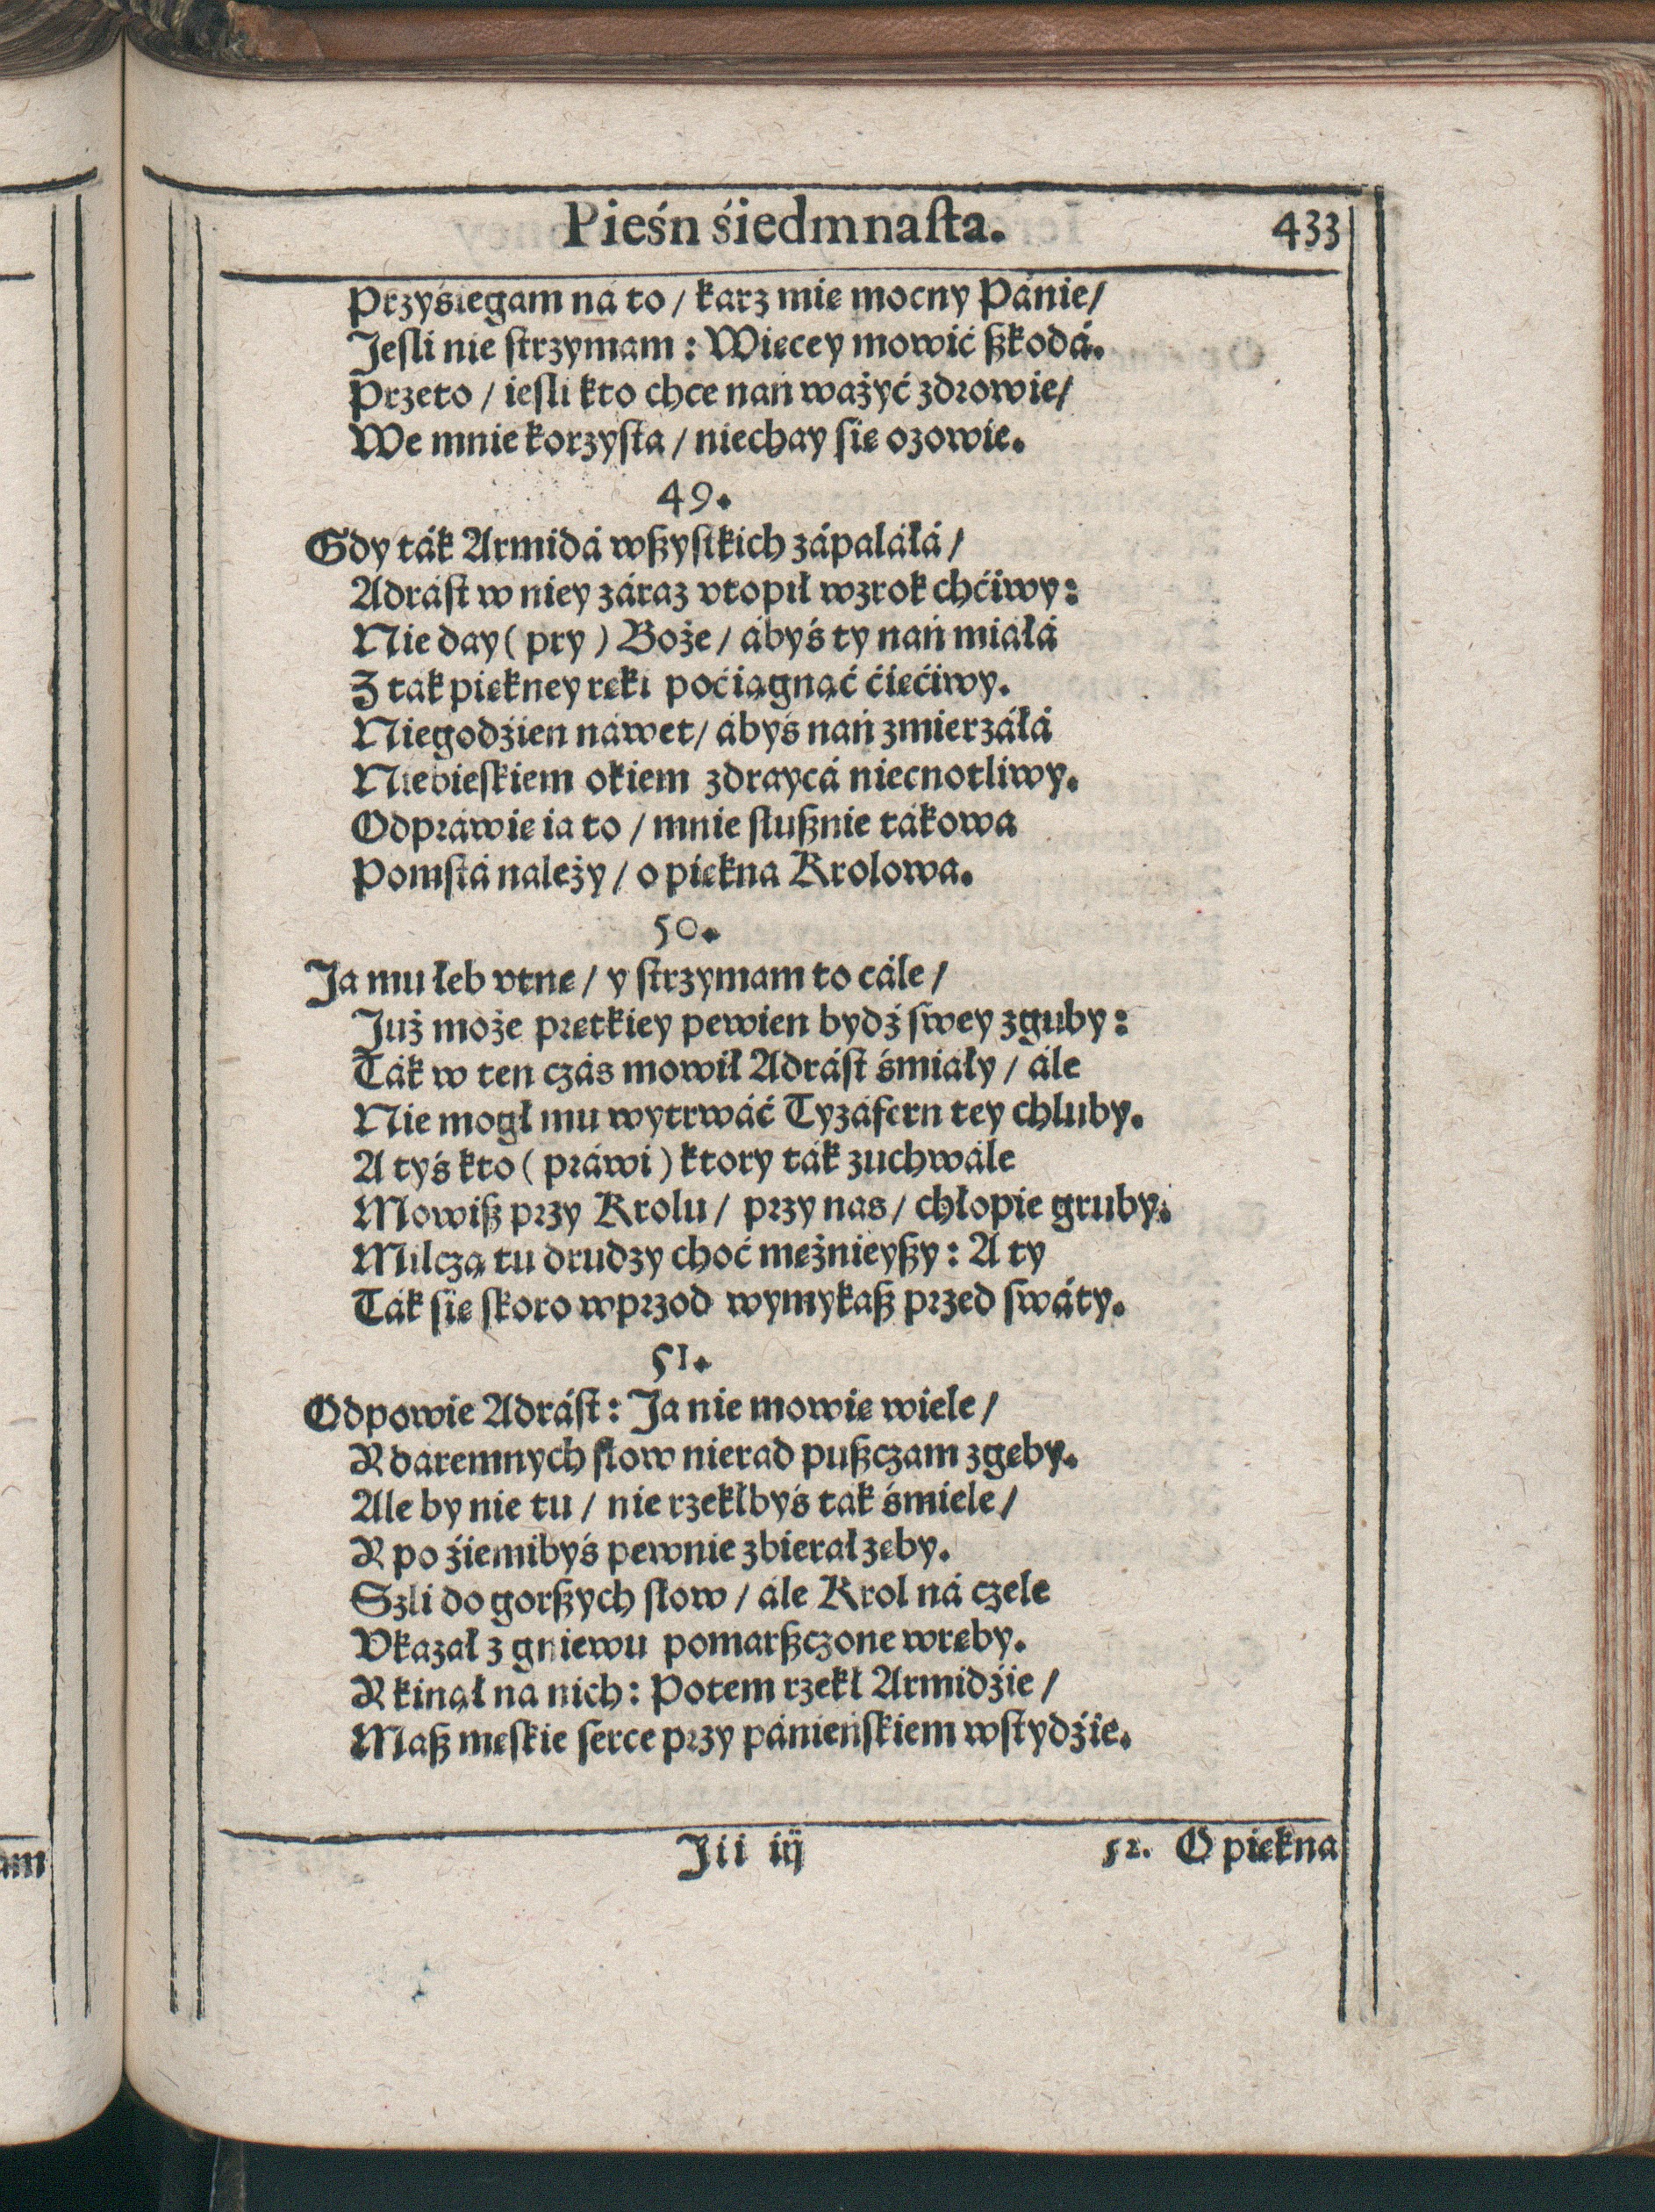 Pieśń śiedmnaſta. 433
Przyśięgam ná to / karz mię mocny Pánie /
Jeſli nie ſtrzymam : Więcey mowić ßkodá.
Przeto / ieſli kto chce nań ważyć zdrowie /
We mnie korzyſta / niechay ſię ozowie.
49.
Gdy ták Armidá wßyſtkich zápaláłá /
Adráſt w niey záraz vtopił wzrok chćiwy :
Nie day ( pry ) Boże / ábyś ty nań miáłá
Z tak piękney ręki poćiągnąć ćięćiwy.
Niegodźien náwet / ábyś nań zmierzáłá
Niebieſkiem okiem zdraycá niecnotliwy.
Odpráwię ia to / mnie ſłußnie tákowa
Pomſtá należy / o piękna Krolowa.
50.
Ja mu łeb vtnę / y ſtrzymam to cále /
Już może prętkiey pewien bydź ſwey zguby :
Ták w ten czás mowił Adráſt śmiáły / ále
Nie mogł mu wytrwáć Tyzáfern tey chluby.
A tyś kto ( práwi ) ktory ták zuchwále
Mowiß przy Krolu / przy nas / chłopie gruby.
Milczą tu drudzy choć mężnieyßy : A ty
Ták ſię ſkoro wprzod wymykaß przed ſwáty.
51.
Odpowie Adráſt : Ja nie mowię wiele /
Y daremnych ſłow nierad pußczam z gęby.
Ale by nie tu / nie rzekłbyś tak śmiele /
Y po źiemibyś pewnie zbierał zęby.
Szli do gorßych ſłow / ále Krol ná czele
Vkazał z gniewu pomarßczone wręby.
Y kinął na nich : Potem rzekł Armidźie /
Maß męſkie ſerce przy pánieńſkiem wſtydźie.
Jii iij 52. O piękna
am